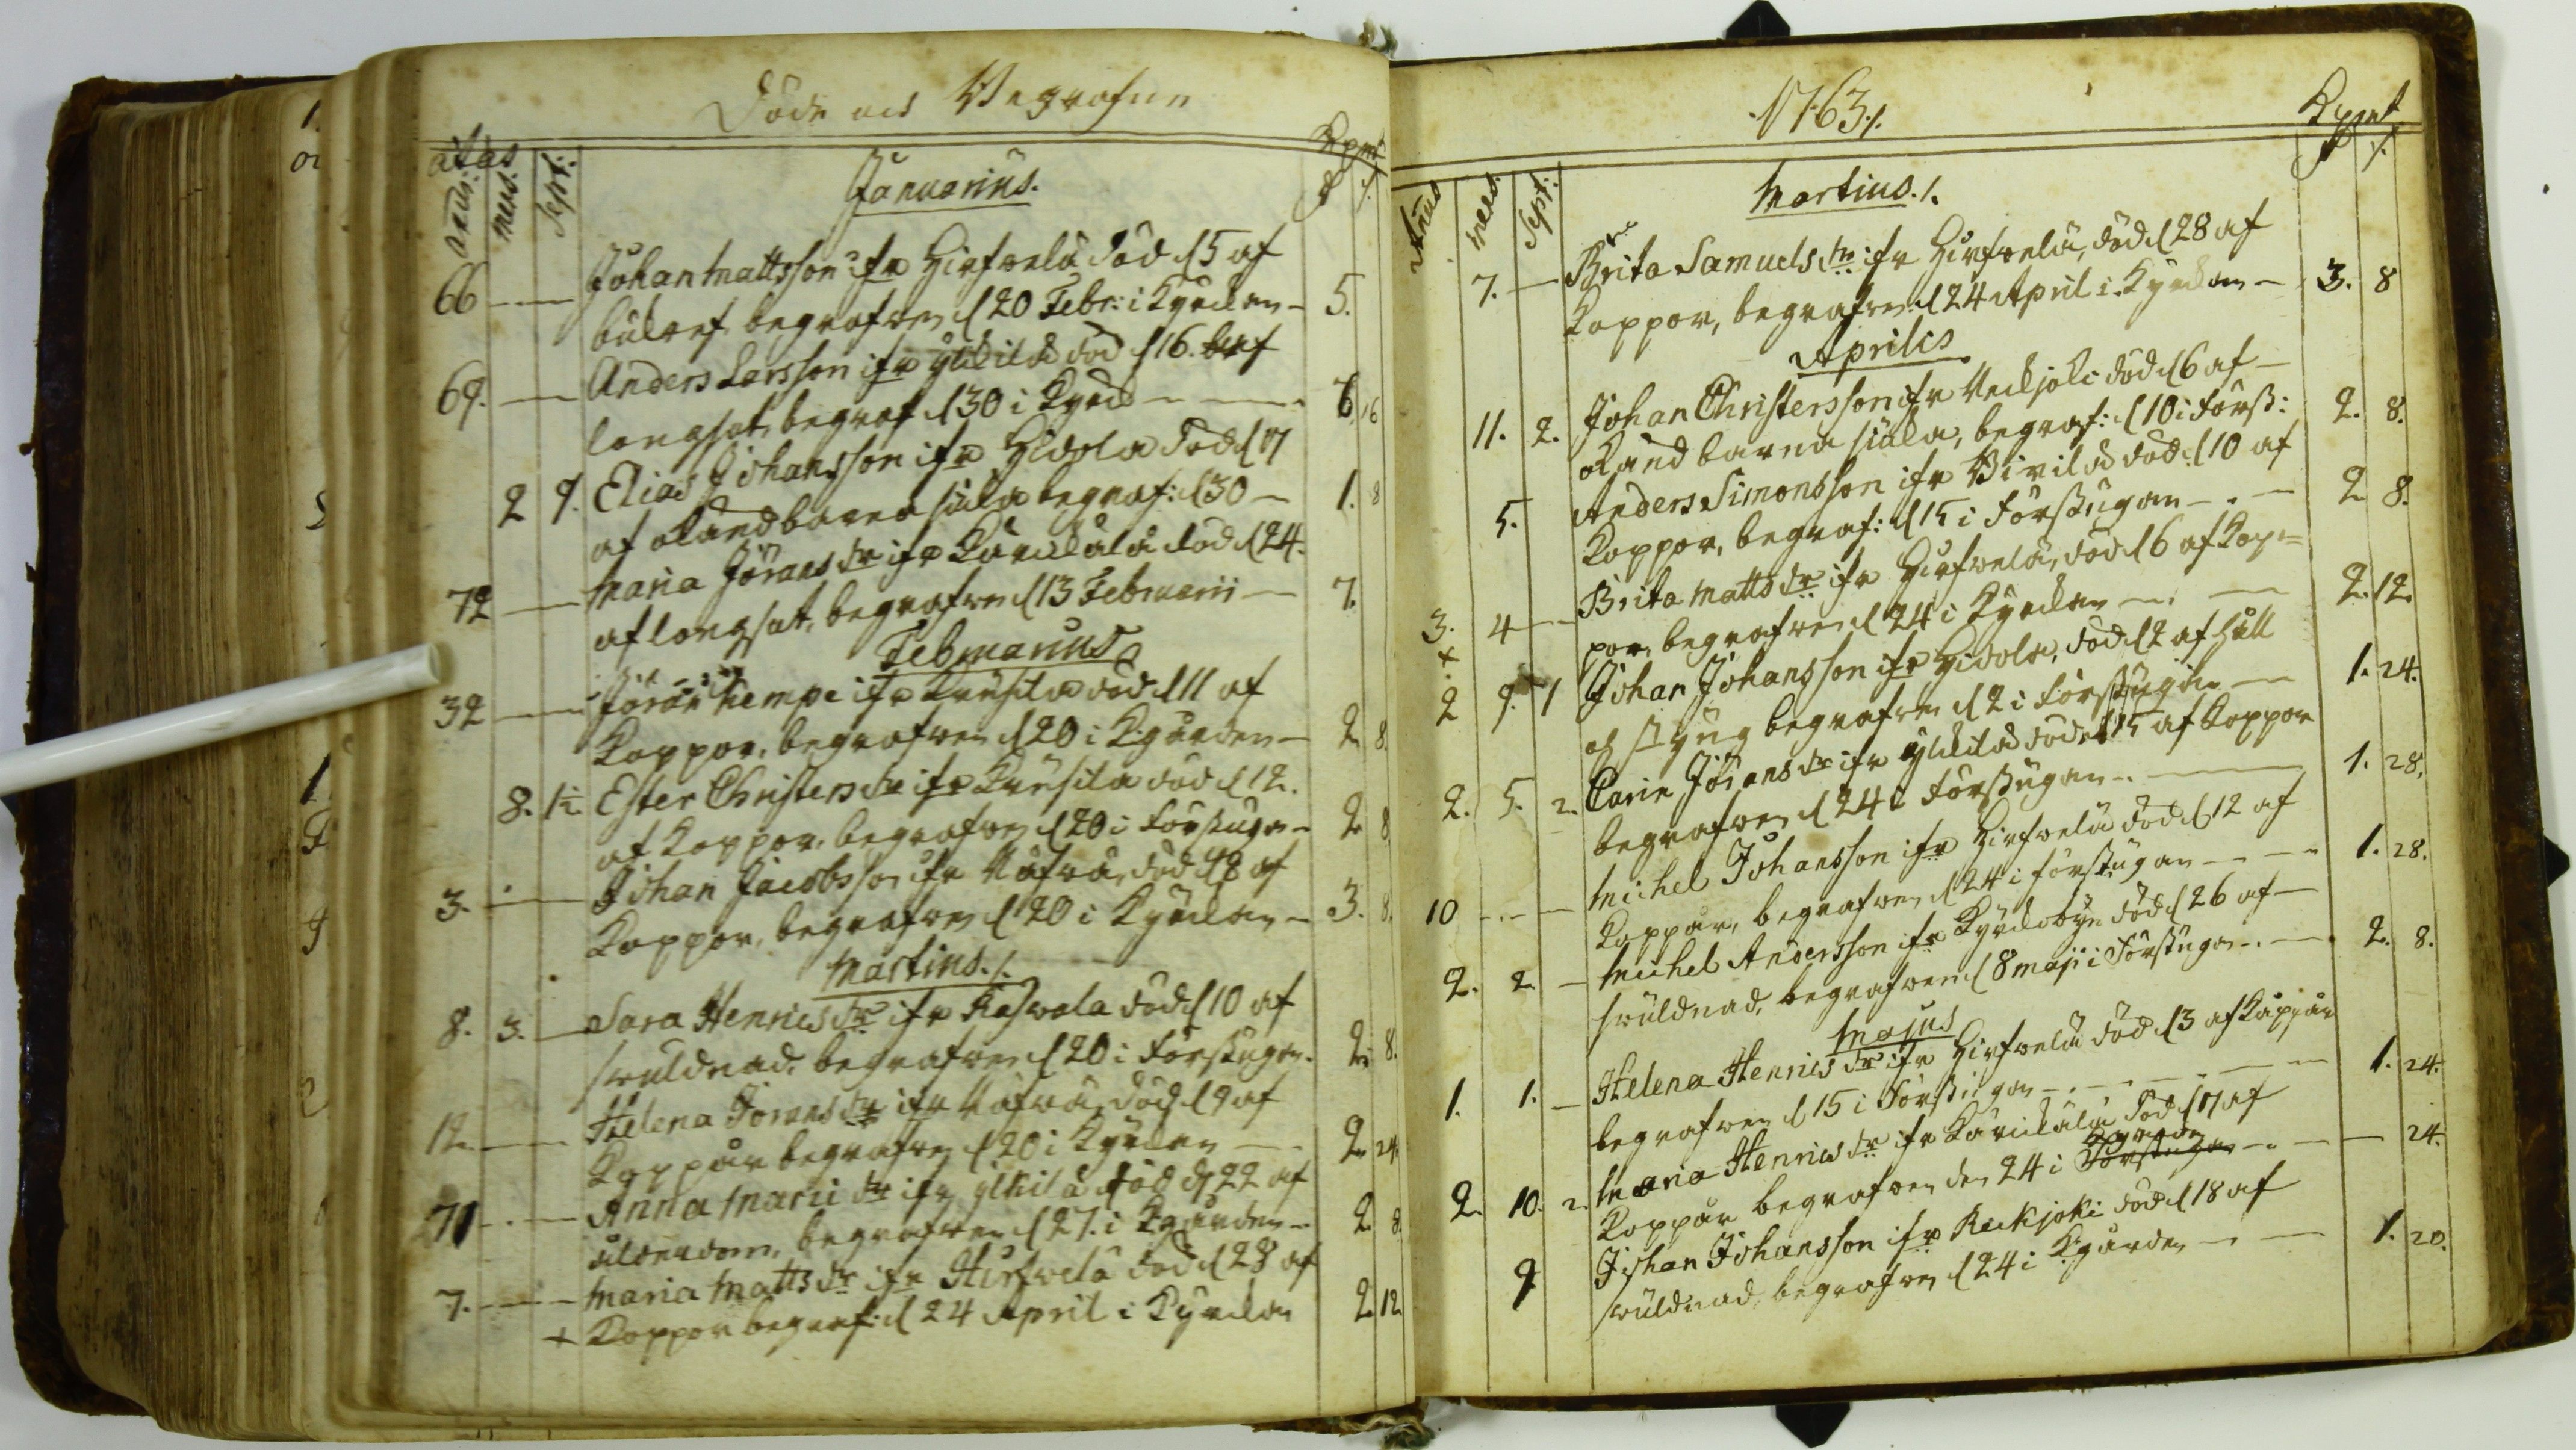 Döde och Begrafne
ætas
Kpmt
annus. mens. sept:
Januarius.
66 — Johan Mattsson ifr Hirfvelä död d 5 af
bulref begrafwen d 20 Febr: i Kyrckan - 5.
69. — Anders Larsson ifr Ylikilä död d 16. af
langsot, begraf d 30 i Kyrck — 6 16
2 9. Elias Johansson ifr Hidola död d 17
af okänd barna siuka begraf: d 30 — 1. 8
72 — Maria Jörans dr ifr död d 24.
af longsot, begrafwen d 13 Februarii — 7.
Februarius
32 — Jöran Kempe ifr Krusila död d 11 af
Koppor, begrafwen d 20 i Kgården — 2 8.
8. 1½ Ester Christers dr ifr Krusila död d 12.
af Koppor, begrafwen d 20 i Förstugan - 2 8
3. — Johan Jacobsson ifr död d 18 af
Koppor, begrafwen d 20 i Kyrckan - 3. 8.
Martius./.
8. 3. — Sara Henrics dr ifr Kaswala död d 10 af
swuldnad, begrafwen d 20 i Förstugan. 2. 8.
12 — Helena Jörans dr ifr död d 9 af
Koppår begrafwen d 20 i Kyrckan — 2 24.
71 — Anna Marci dr ifr Ylikilä död d 22 af
ålderdom, begrafwen d 27. i Kgården - 2 8.
7. — Maria Matts dr ifr Hirfvelä död d 28 af
+ Koppor begraf: d 24 April i Kyrckan 2 12
1763./.
Kpmt
annus mens. Sept:
Martius./.
7. — Brita Samuels dr ifr Hirfvelä, död d 28 af
Koppor, begrafwen d 24 April i Kyrckan — 3. 8
Aprilis
11. 2. Johan Christersson ifr Reckjoki död d 6 af —
okänd barna siuka, begraf: d 10 i Först: 2. 8.
5. Anders Simonsson ifr död d 10 af
Koppor, begraf: d 15 i Förstugan — 2 8.
3. 4 — Brita Matts dr ifr Hirfvelä, död d 6 af Kop=
por, begrafwen d 24 i Kyrckan — 2. 12.
+
2 9. 1 Johan Johansson ifr Hidola, död d 2 af håll
och styng begrafwen d 2 i Förstugan — 1. 24.
2. 5. 2. Carin Jörans dr ifr Ylikilä död d 15 af Koppor
begrafwen d 24 i Förstugan — 1. 28.
10 — Michel Johansson ifr Hirfvelä död d 12 af
Koppår, begrafwen d 24 i förstugan — 1. 28.
2. 2. — Michel Andersson ifr Kyrckobyn död d 26 af —
swuldnad, begrafwen d 8 maji i Förstugan — 2. 8.
Majus
1. 1. — Helena Henrics dr ifr Hirfvelä död d 3 af Kåppår
begrafwen d 15 i Förstugan — 1. 24.
2. 10. 2. Maria Henrics dr ifr död d 17 af
Kgården
Koppår begrafwen den 24 i Förstugan — 24.
9 Johan Johansson ifr Reckjoki död d 18 af
swuldnad, begrafwen d 24 i Kgården — 1. 20.